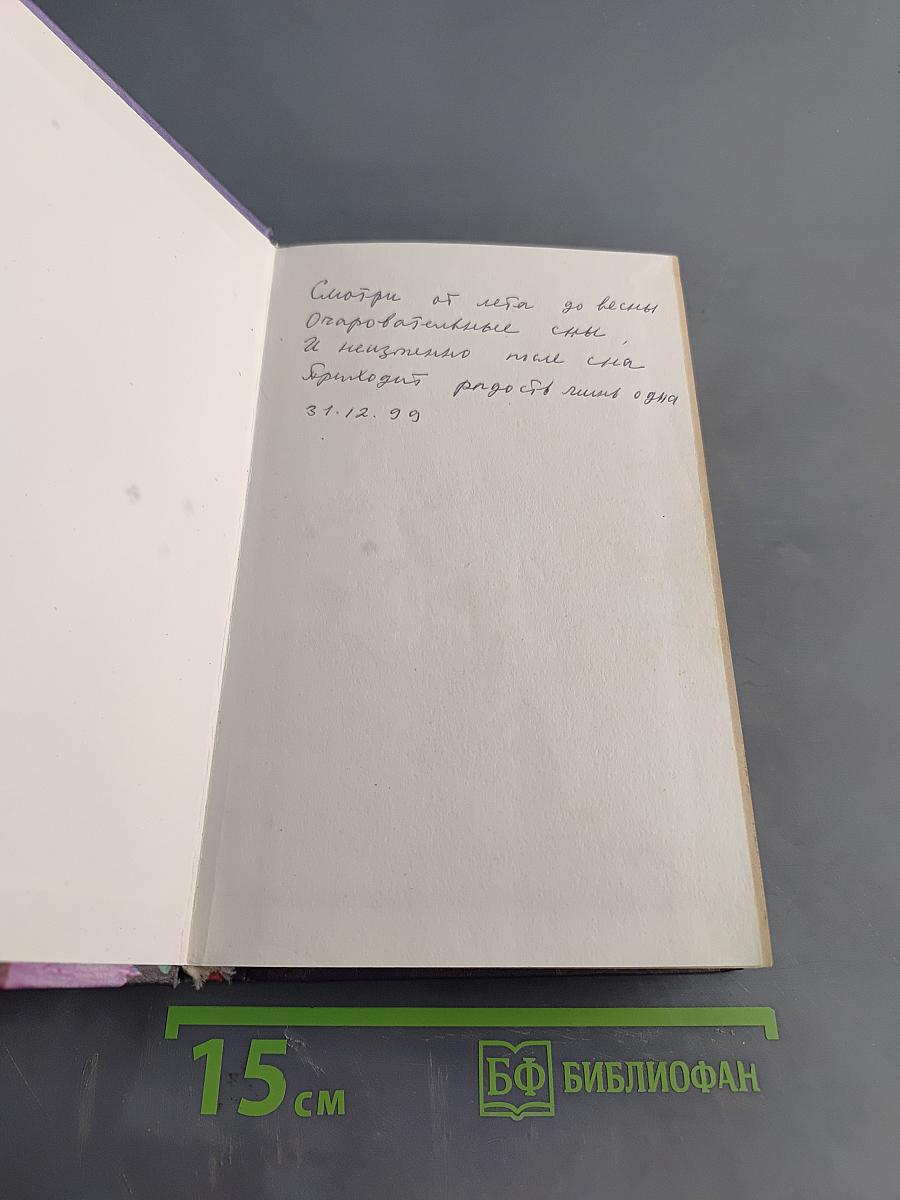 Смотри от лета до весны
Очаровательные сны,
И неизменно после сна
Приходит радость лишь одна
31.12.99
15 см
БФ БИБЛИОФАН